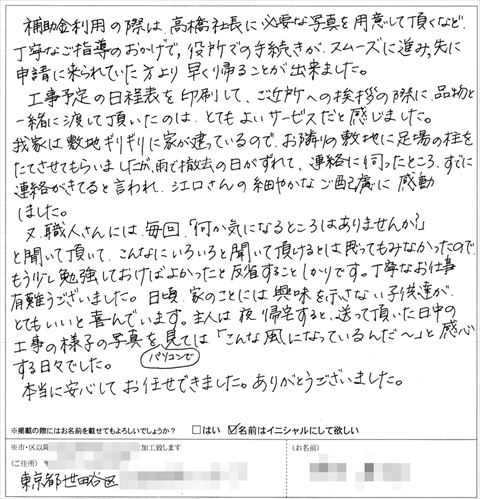 補助金利用の際は、高橋社長に必要な写真を用意して頂くなど、
丁寧なご指導のおかげで、役所での手続きが、スムーズに進み、先に
申請に来られていた方より早く帰ることが出来ました。
工事予定の日程表を印刷して、ご近所への挨拶の際に、品物と
一緒に渡して頂いたのは、とてもよいサービスだと感じました。
我家は敷地ギリギリに家が建っているので、お隣りの敷地に足場の柱を
たてさせてもらいましたが、雨で撤去の日がずれて、連絡に伺ったところ、すでに
連絡がきてると言われ、江口さんの細やかなご配慮に感動
しました。
又、職人さんには、毎回、「何か気になるところはありませんか?」
と聞いて頂いて、こんなにいろいろと聞いて頂けるとは思ってもみなかったので、
もう少し勉強しておけばよかったと反省することしかりです。丁寧なお仕事
有難うございました。日頃、家のことには興味を示さない子供達が、
とてもいいと喜んでいます。主人は夜帰宅すると、送って頂いた日中の
工事の様子の写真をパソコンで見ては「こんな風になっているんだ〜」と感心
する日々でした。
本当に安心してお任せできました。ありがとうございました。
※掲載の際にはお名前を載せてもよろしいでしょうか? □はい ☑名前はイニシャルにして欲しい
※市・区以降 に加工致します
(ご住所) (お名前)
東京都世田谷区